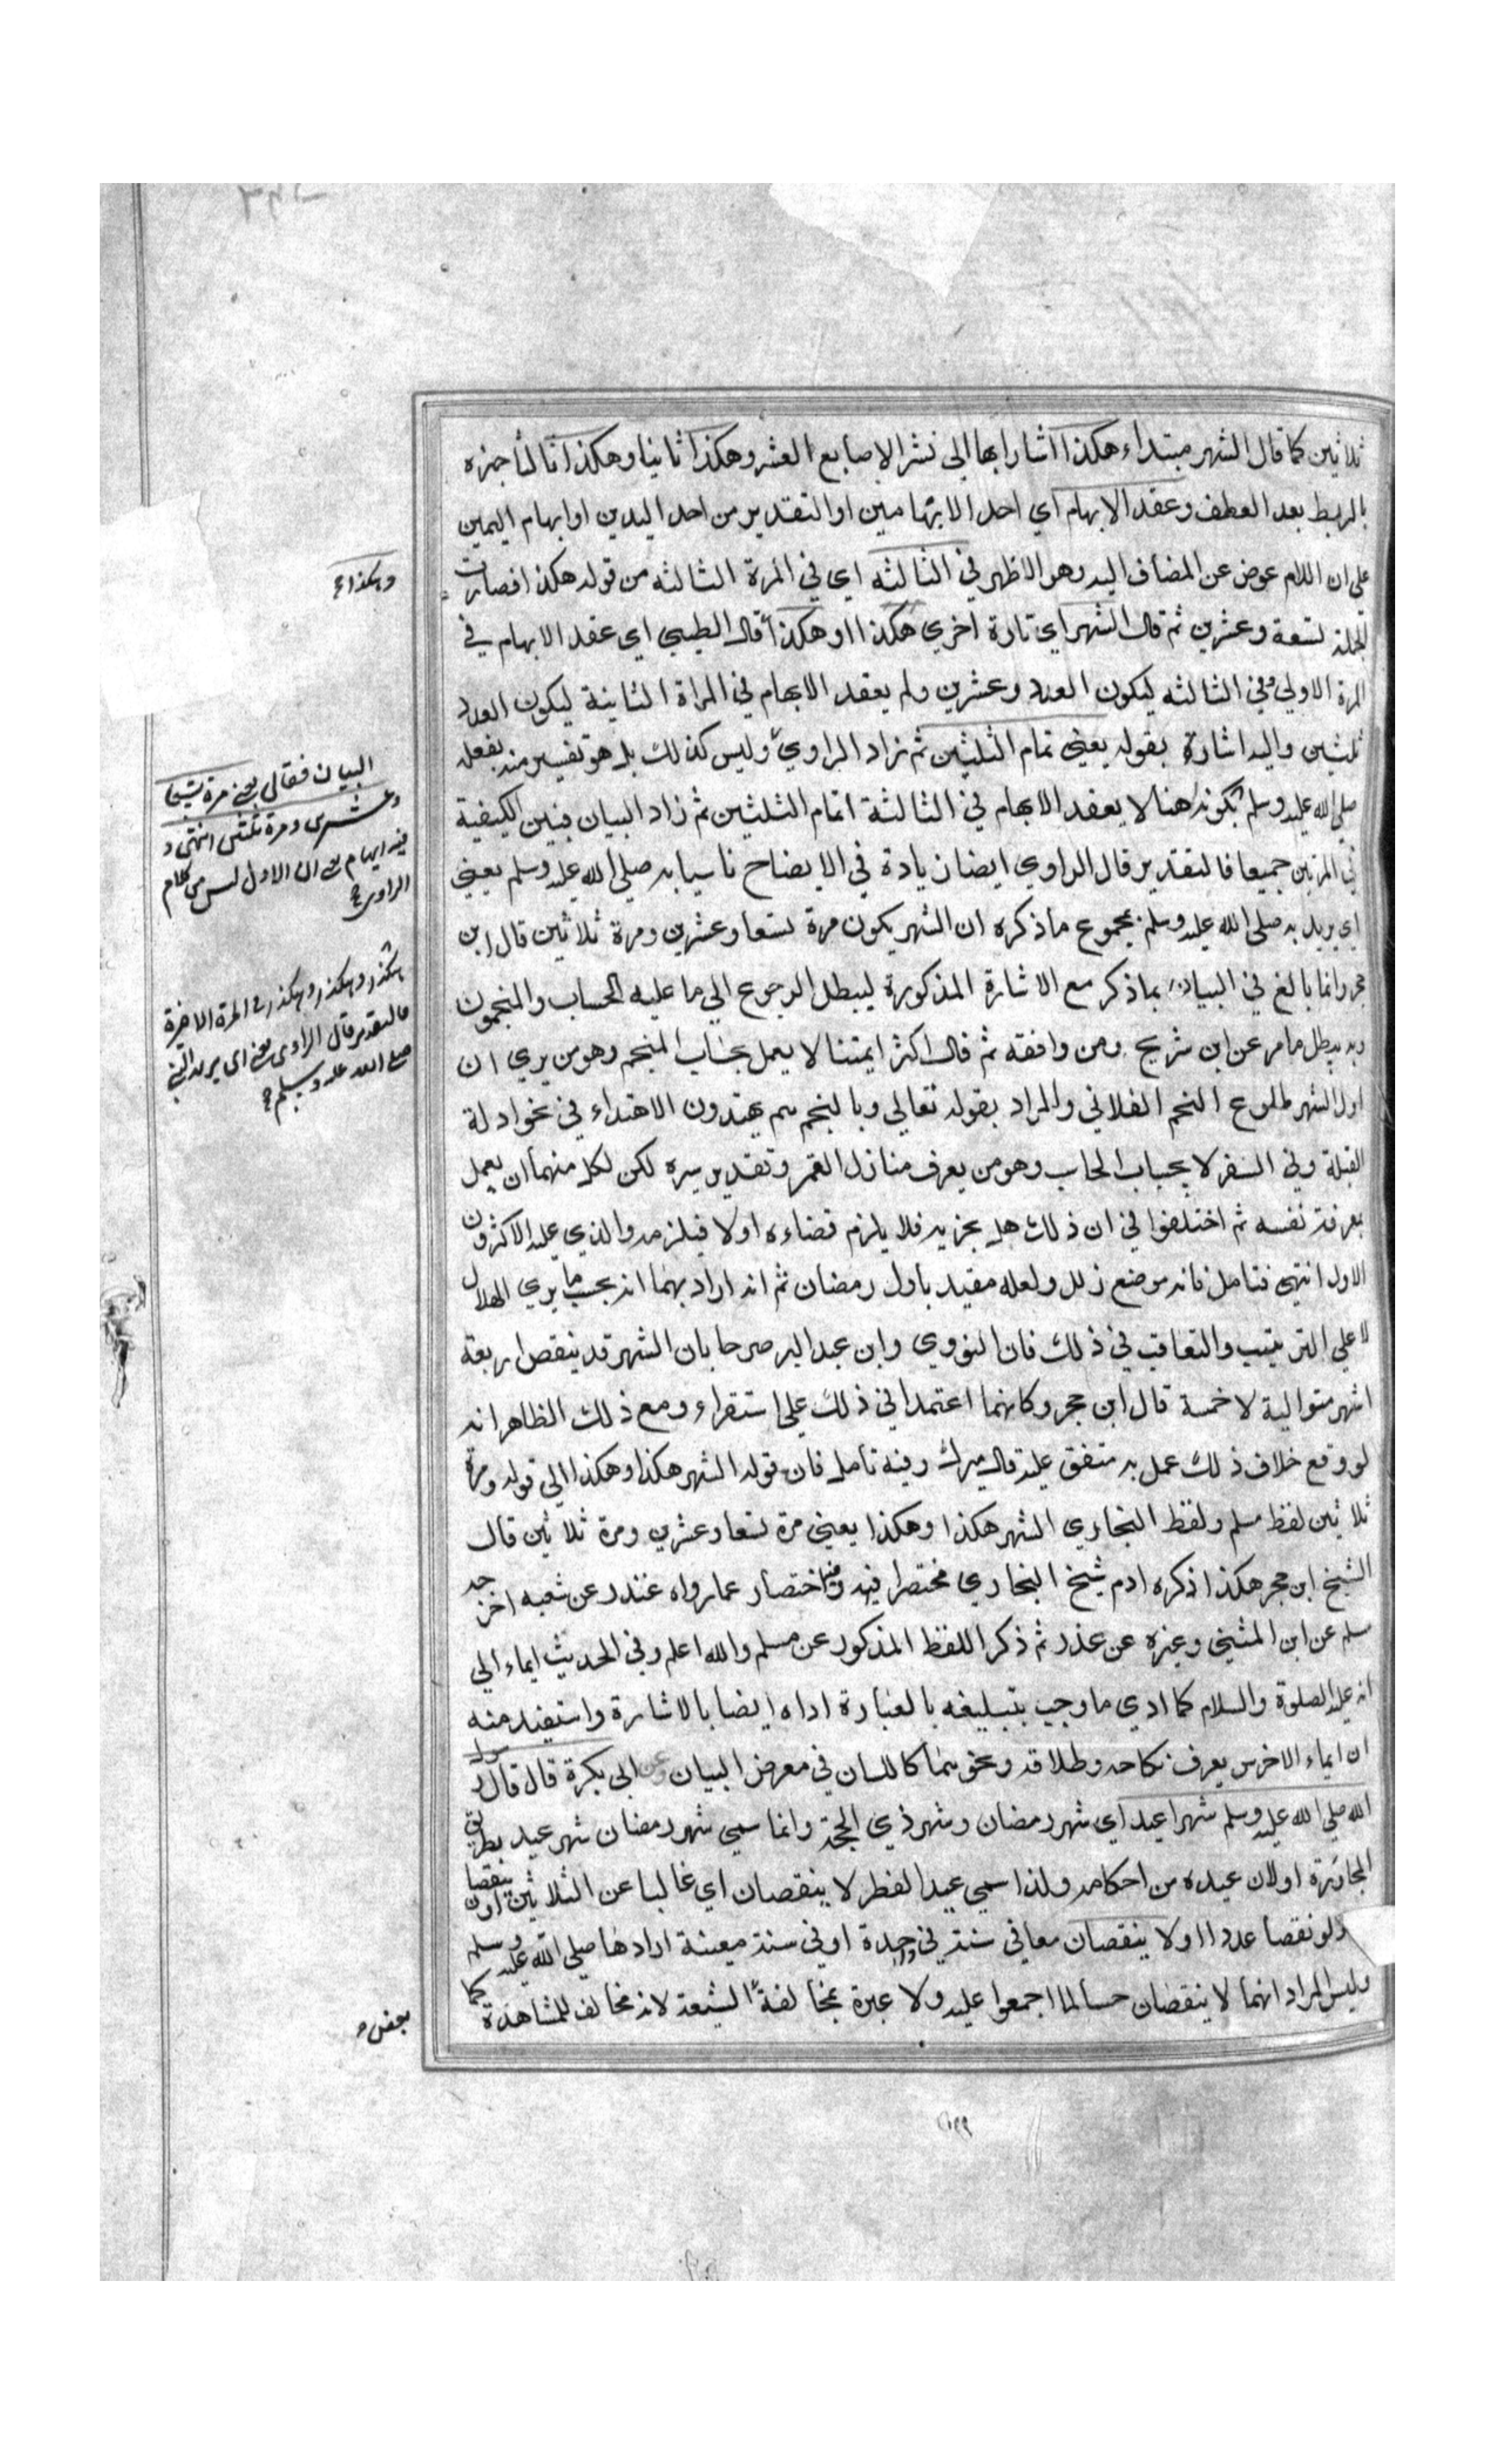 ثلاثين كما قال الشهر مبتداء هكذا اشار ابها الى نشر الاصابع العشر وهكذا ثانيا وهكذا ثالثا خبره
بالربط بعد العطف وعقد الابهام اي احد الابهامين او التقدير من احد اليدين او ابهام اليمين
على ان اللام عوض عن المضاف اليه وهو الاظهر في الثالثه اي في المرة الثالثه من قوله هكذا فصارت
الجملة تسعة وعشرين ثم قال الشهر اي تارة اخري هكذا وهكذا قال الطيبي اي عقد الابهام في
المرة الاولي في الثالثه ليكون العدد وعشرين ولم يعقد الابهام في المراة الثانية ليكون العدد
ثلثين واليه اشارة بقوله يعني تمام الثلثين ثم زاد الراوي وليس كذلك بل هو تفسير منه بفعله
صلى الله عليه وسلم بكونه هنا لا يعقد الابهام في الثالثة اتمام الثلثين ثم زاد البيان فبين الكيفية
في المرتين جميعا فالتقدير قال الراوي ايضا زيادة في الايضاح ناسيا به صلى الله عليه وسلم يعني
اي يريد به صلى الله عليه وسلم بمجموع ما ذكره ان الشهر يكون مرة تسعا وعشرين ومرة ثلاثين قال ابن
حجر وانما بالغ في البيان بما ذكر مع الاشارة المذكورة ليبطل الرجوع الي ما عليه الحساب والمنجمون
وبه يبطل ما مر عن ابن شريح ومن وافقه ثم قال اكثر ايمتنا لا يعمل بحساب المنجم وهو من يري ان
اول الشهر طلوع النجم الفلاني والمراد بقوله تعالي وبالنجم هم يهتدون الاهتداء في نحو ادلة
القبلة وفي السفر لا بحساب الحاسب وهو من يعرف منازل القمر وتقدير سيره لكن لكل منهما ان يعمل
بمعرفة نفسه ثم اختلفوا في ان ذلك هل يجزيه فلا يلزم قضاءه اولا فيلزمه والذي عليه الاكثرون
الاول انتهى فتامل فانه موضع زلل ولعله مقيد باول رمضان ثم انه اراد بهما انه بحسب ما يري الهلال
لا علي الترتيب والتعاقب في ذلك فان النووي وابن عبد البر صرحا بان الشهر قد ينقص اربعة
اشهر متوالية لا خمسة قال ابن حجر وكانهما اعتمدا في ذلك على استقراء ومع ذلك الظاهر انه
لو وقع خلاف ذلك عمل به متفق عليه قال ميرك وفيه تامل فان قوله الشهر هكذا وهكذا الى قوله ومرة
ثلاثين لفظ مسلم ولفظ البخاري الشهر هكذا وهكذا يعني مرة تسعا وعشرين ومرة ثلاثين قال
الشيخ ابن حجر هكذا ذكره ادم شيخ البخاري مختصرا فيه اختصار عما رواه غندر عن شعبه اخرجه
مسلم عن ابن المثني وغيره عن غندر ثم ذكر اللفظ المذكور عن مسلم والله اعلم وفي الحديث ايماء الي
انه عليه الصلوة والسلام كما ادي ما وجب بتبليغه بالعبارة اداه ايضا بالاشارة واستفيد منه
ان ايماء الاخرس يعرف نكاحه وطلاقه ونحوهما كاللسان في معرض البيان وعن ابي بكرة قال قال رسول
الله صلى الله عليه وسلم شهرا عيد اي شهر رمضان وشهر ذي الحجة وانما سمي شهر رمضان شهر عيد بطريق
المجاورة اولان عيده من احكامه ولذا سمي عيد الفطر لا ينقصان اي غالبا عن الثلاثين او لا ينقصا
ولو نقصا عددا اولا ينقصان معا في سنة واحدة او في سنة معينة ارادها صلى الله عليه وسلم
وليس المراد انهما لا ينقصان حسا لما اجمعوا عليه ولا عبرة بمخالفة الشيعة لانه مخالف للمشاهدة كما
وهكذا
البيان فقال يعني مرة تسعا
وعشرين ومرة ثلثين انتهى و
فيه ايهام على ان الاول ليس من كلام
الراوي
هكذا وهكذا وهكذا في المرة الاخيرة
فالتقدير قال الراوي يعني اي يريد النبي
صلى الله عليه وسلم
بعض